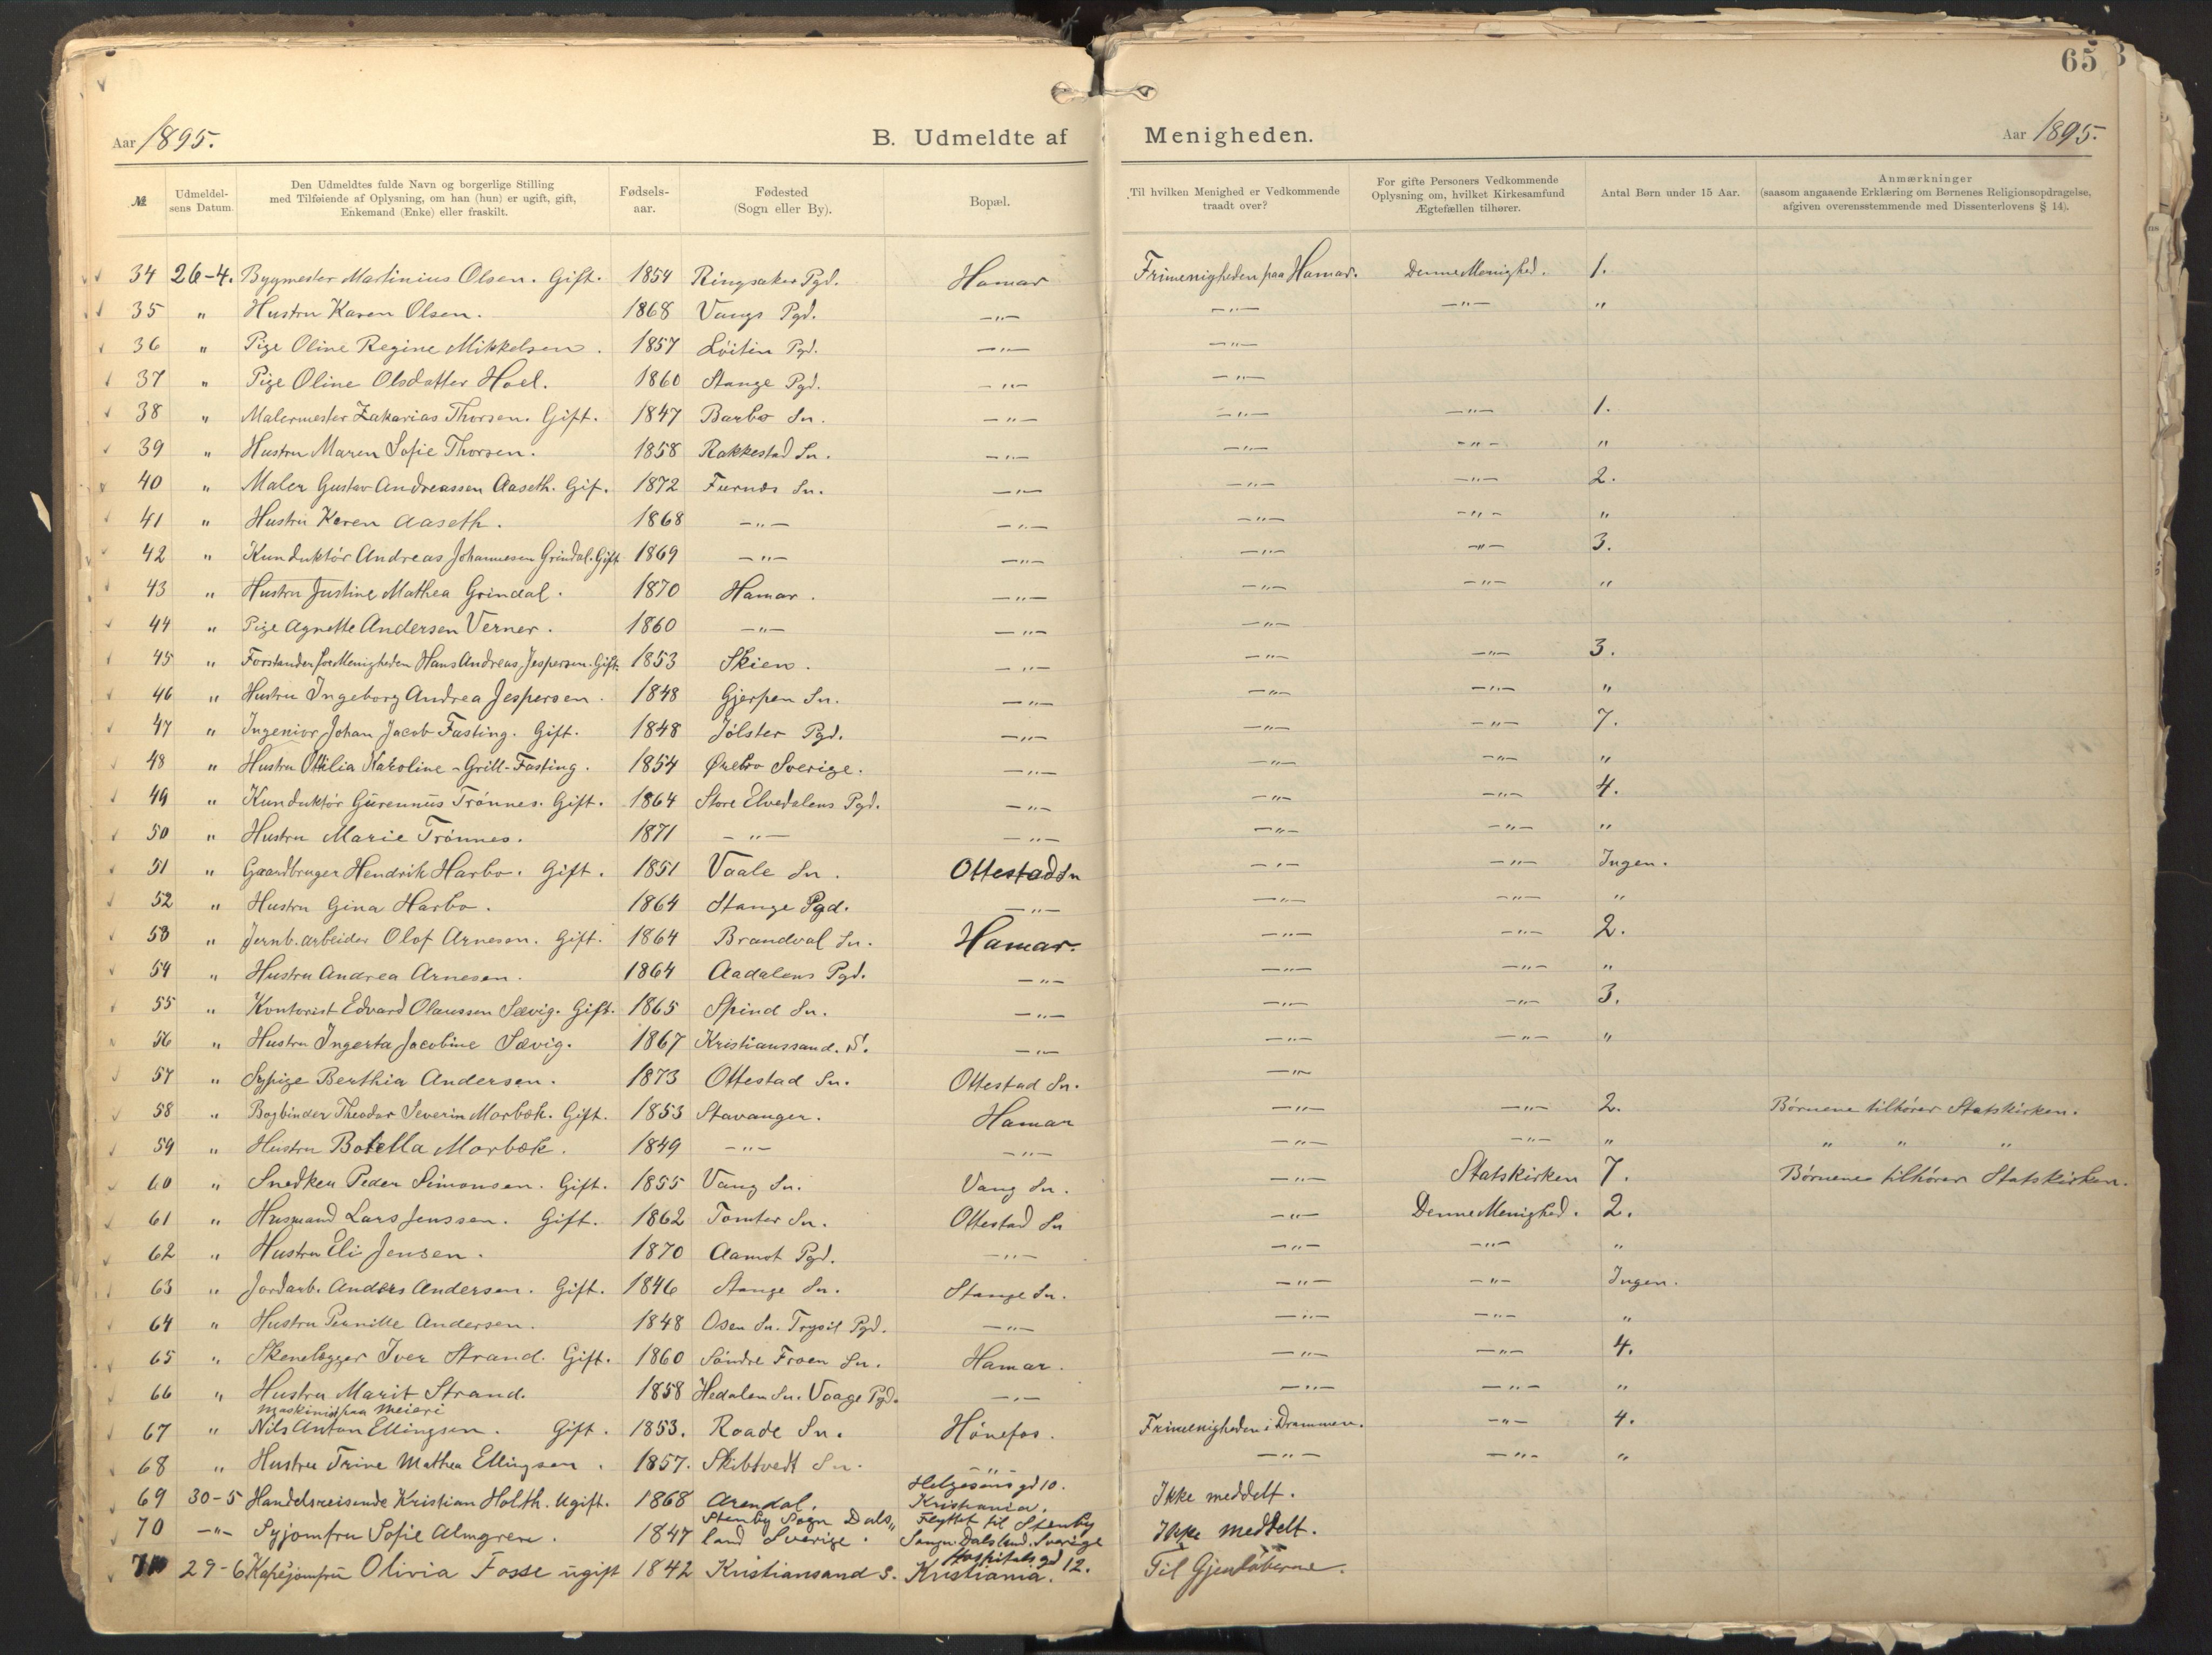 65
Aar 1895. B. Udmeldte af Menigheden. Aar 1895.
№ | Udmeldelsens Datum. | Den Udmeldtes fulde Navn og borgerlige Stilling med Tilføiende af Oplysning, om han (hun) er ugift, gift, Enkemand (Enke) eller fraskilt. | Fødselsaar. | Fødested (Sogn eller By). | Bopæl. | Til hvilken Menighed er Vedkommende traadt over? | For gifte Personers Vedkommende Oplysning om, hvilket Kirkesamfund Ægtefællen tilhører. | Antal Børn under 15 Aar. | Anmærkninger (saasom angaaende Erklæring om Børnenes Religionsopdragelse, afgiven overensstemmende med Dissenterlovens § 14).
34 26-4. Bygmester Martinius Olsen. Gift. 1854 Ringsaker Pgd. Hamar Frimenigheden paa Hamar. Denne Menighed. 1.
35 " Hustru Karen Olsen. 1868 Vangs Pgd. —"— —"— —"— "
36 " Pige Oline Regine Mikkelsen. 1857 Löiten Pgd. —"— —"—
37 " Pige Oline Olsdatter Hoel. 1860 Stange Pgd. —"— —"—
38 " Malermester Zakarias Thorsen. Gift. 1847 Barbo Sn. —"— —"— —"— 1.
39 " Hustru Maren Sofie Thorsen. 1858 Rakkestad Sn. —"— —"— —"— "
40 " Maler Gustav Andreassen Aaseth. Gif. 1872 Furnes Sn. —"— —"— —"— 2.
41 " Hustru Karen Aaseth. 1868 —"— —"— —"— —"— "
42 " Kunduktör Andreas Johannesen Grindal. Gift 1869 —"— —"— —"— —"— 3.
43 " Hustru Justine Mathea Grindal. 1870 Hamar. —"— —"— —"— "
44 " Pige Agnette Andersen Verner. 1860 —"— —"— —"—
45 " Forstander for Menigheden Hans Andreas Jespersen. Gift. 1853 Skien. —"— —"— —"— 3.
46 " Hustru Ingeborg Andrea Jespersen. 1848 Gjerpen Sn. —"— —"— —"— "
47 " Ingeniør Johan Jacob Fasting. Gift. 1848 Jölster Pgd. —"— —"— —"— 7.
48 " Hustru Ottilia Karoline-Grill-Fasting. 1854 Ørebro Sverige. —"— —"— —"— "
49 " Kunduktör Gurennus Trönnes. Gift. 1864 Store Elvedalens Pgd. —"— —"— —"— 4.
50 " Hustru Marie Trönnes. 1871 —"— —"— —"— —"— "
51 " Gaardbruger Hendrik Harbo. Gift. 1851 Vaale Sn. Ottestad Sn —"— —"— Ingen.
52 " Hustru Gina Harbo. 1864 Stange Pgd. —"— —"— —"— "
53 " Jernb.arbeider Olof Arnesen. Gift. 1864 Brandval Sn. Hamar. —"— —"— 2.
54 " Hustru Andrea Arnesen. 1864 Aadalens Pgd. —"— —"— —"— "
55 " Kontorist Edvard Olaussen Sævig. Gift. 1865 Spind Sn. —"— —"— —"— 3.
56 " Hustru Ingerta Jacobine Sævig. 1867 Kristianssand. S. —"— —"— —"— "
57 " Sypige Berthia Andersen. 1873 Ottestad Sn. Ottestad Sn. —"—
58 " Bogbinder Theodor Severin Morbæk. Gift. 1853 Stavanger. Hamar —"— —"— 2. Börnene tilhörer Statskirken.
59 " Hustru Botella Morbæk. 1849 —"— —"— —"— —"— " " " "
60 " Snedker Peder Simonsen. Gift. 1855 Vang Sn. Vang Sn. —"— Statskirken 7. Börnene tilhörer Statskirken.
61 " Husmand Lars Jenssen. Gift. 1862 Tomter Sn. Ottestad Sn —"— Denne Menighed. 2.
62 " Hustru Eli Jensen. 1870 Aamot Pgd. —"— —"— —"— "
63 " Jordarb. Anders Andersen. Gift. 1846 Stange Sn. Stange Sn. —"— —"— Ingen.
64 " Hustru Pernille Andersen. 1848 Osen Sn. Trysil Pgd. —"— —"— —"— "
65 " Skenelægger Iver Strand. Gift. 1860 Söndre Froen Sn. Hamar. —"— —"— 4.
66 " Hustru Marit Strand. 1858 Hedalen Sn. Vaage Pgd. —"— —"— —"— "
Maskinist paa Meieri
67 " Nils Anton Ellingsen. Gift. 1853. Raade Sn. Hönefos. Frimenigheden i Drammen. —"— 4.
68 " Hustru Trine Mathea Ellingsen. 1857. Skibtvedt Sn. —"— —"— —"— "
69 30-5 Handelsreisende Kristian Holth. Ugift. 1868 Arendal. Helgesens gd 10. Kristiania. Ikke meddelt.
70 —"— Syjomfru Sofie Almgren. 1847 Stenby Sogn Dalsland Sverige. Flyttet til Stenby Sogn Dalsland. Sverige Ikke meddelt.
71 29-6 Kaféjomfru Olivia Fosse ugift 1842 Kristiansand S. Hospitalsgd 12. Kristiania. Til Gjendöberne.